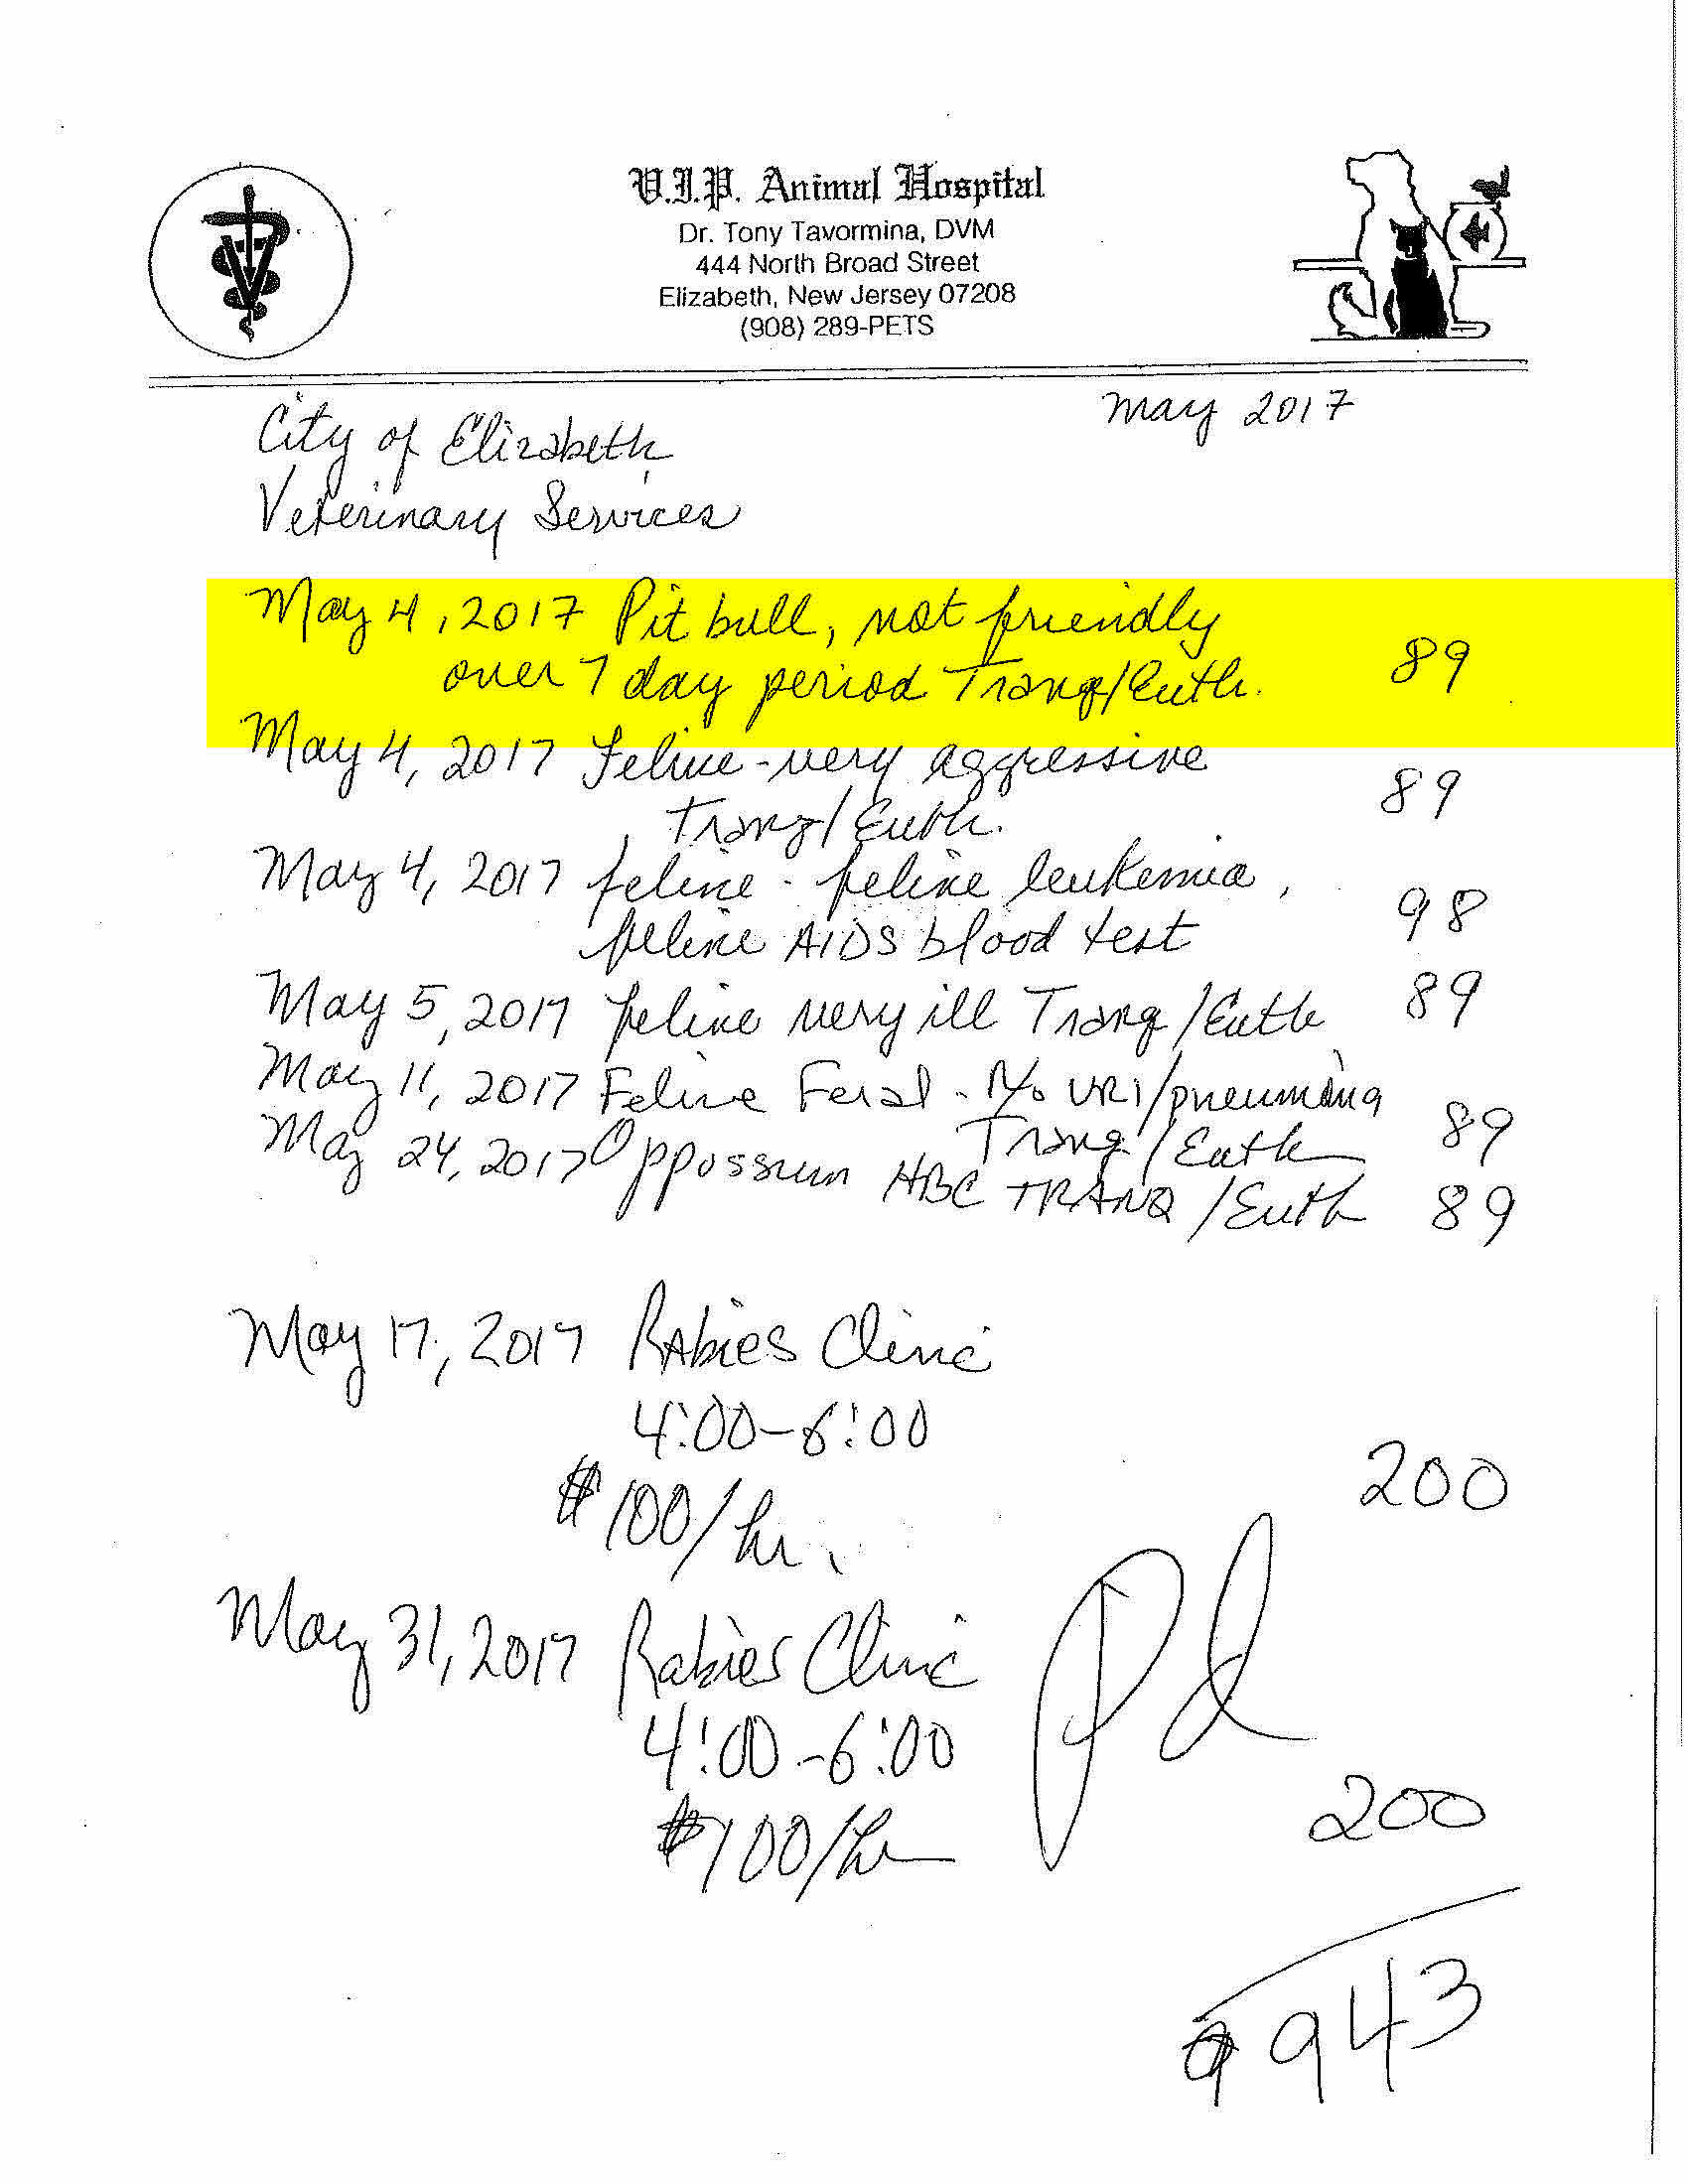 V.I.P. Animal Hospital
Dr. Tony Tavormina, DVM
444 North Broad Street
Elizabeth, New Jersey 07208
(908) 289-PETS
May 2017
City of Elizabeth
Veterinary Services
May 4, 2017 Pit bull, not friendly
over 7 day period Tranq/Euth. 89
May 4, 2017 Feline - very aggressive
Tranq/Euth. 89
May 4, 2017 feline - feline leukemia,
feline AIDS blood test 98
May 5, 2017 feline very ill Tranq/Euth 89
May 11, 2017 Feline Feral - R/o URI/pneumonia
Tranq/Euth 89
May 24, 2017 Oppossum HBC TRANQ/Euth 89
May 17, 2017 Rabies Clinic
4:00-6:00
$100/hr. 200
May 31, 2017 Rabies Clinic
4:00-6:00
Pd
$100/hr 200
$943